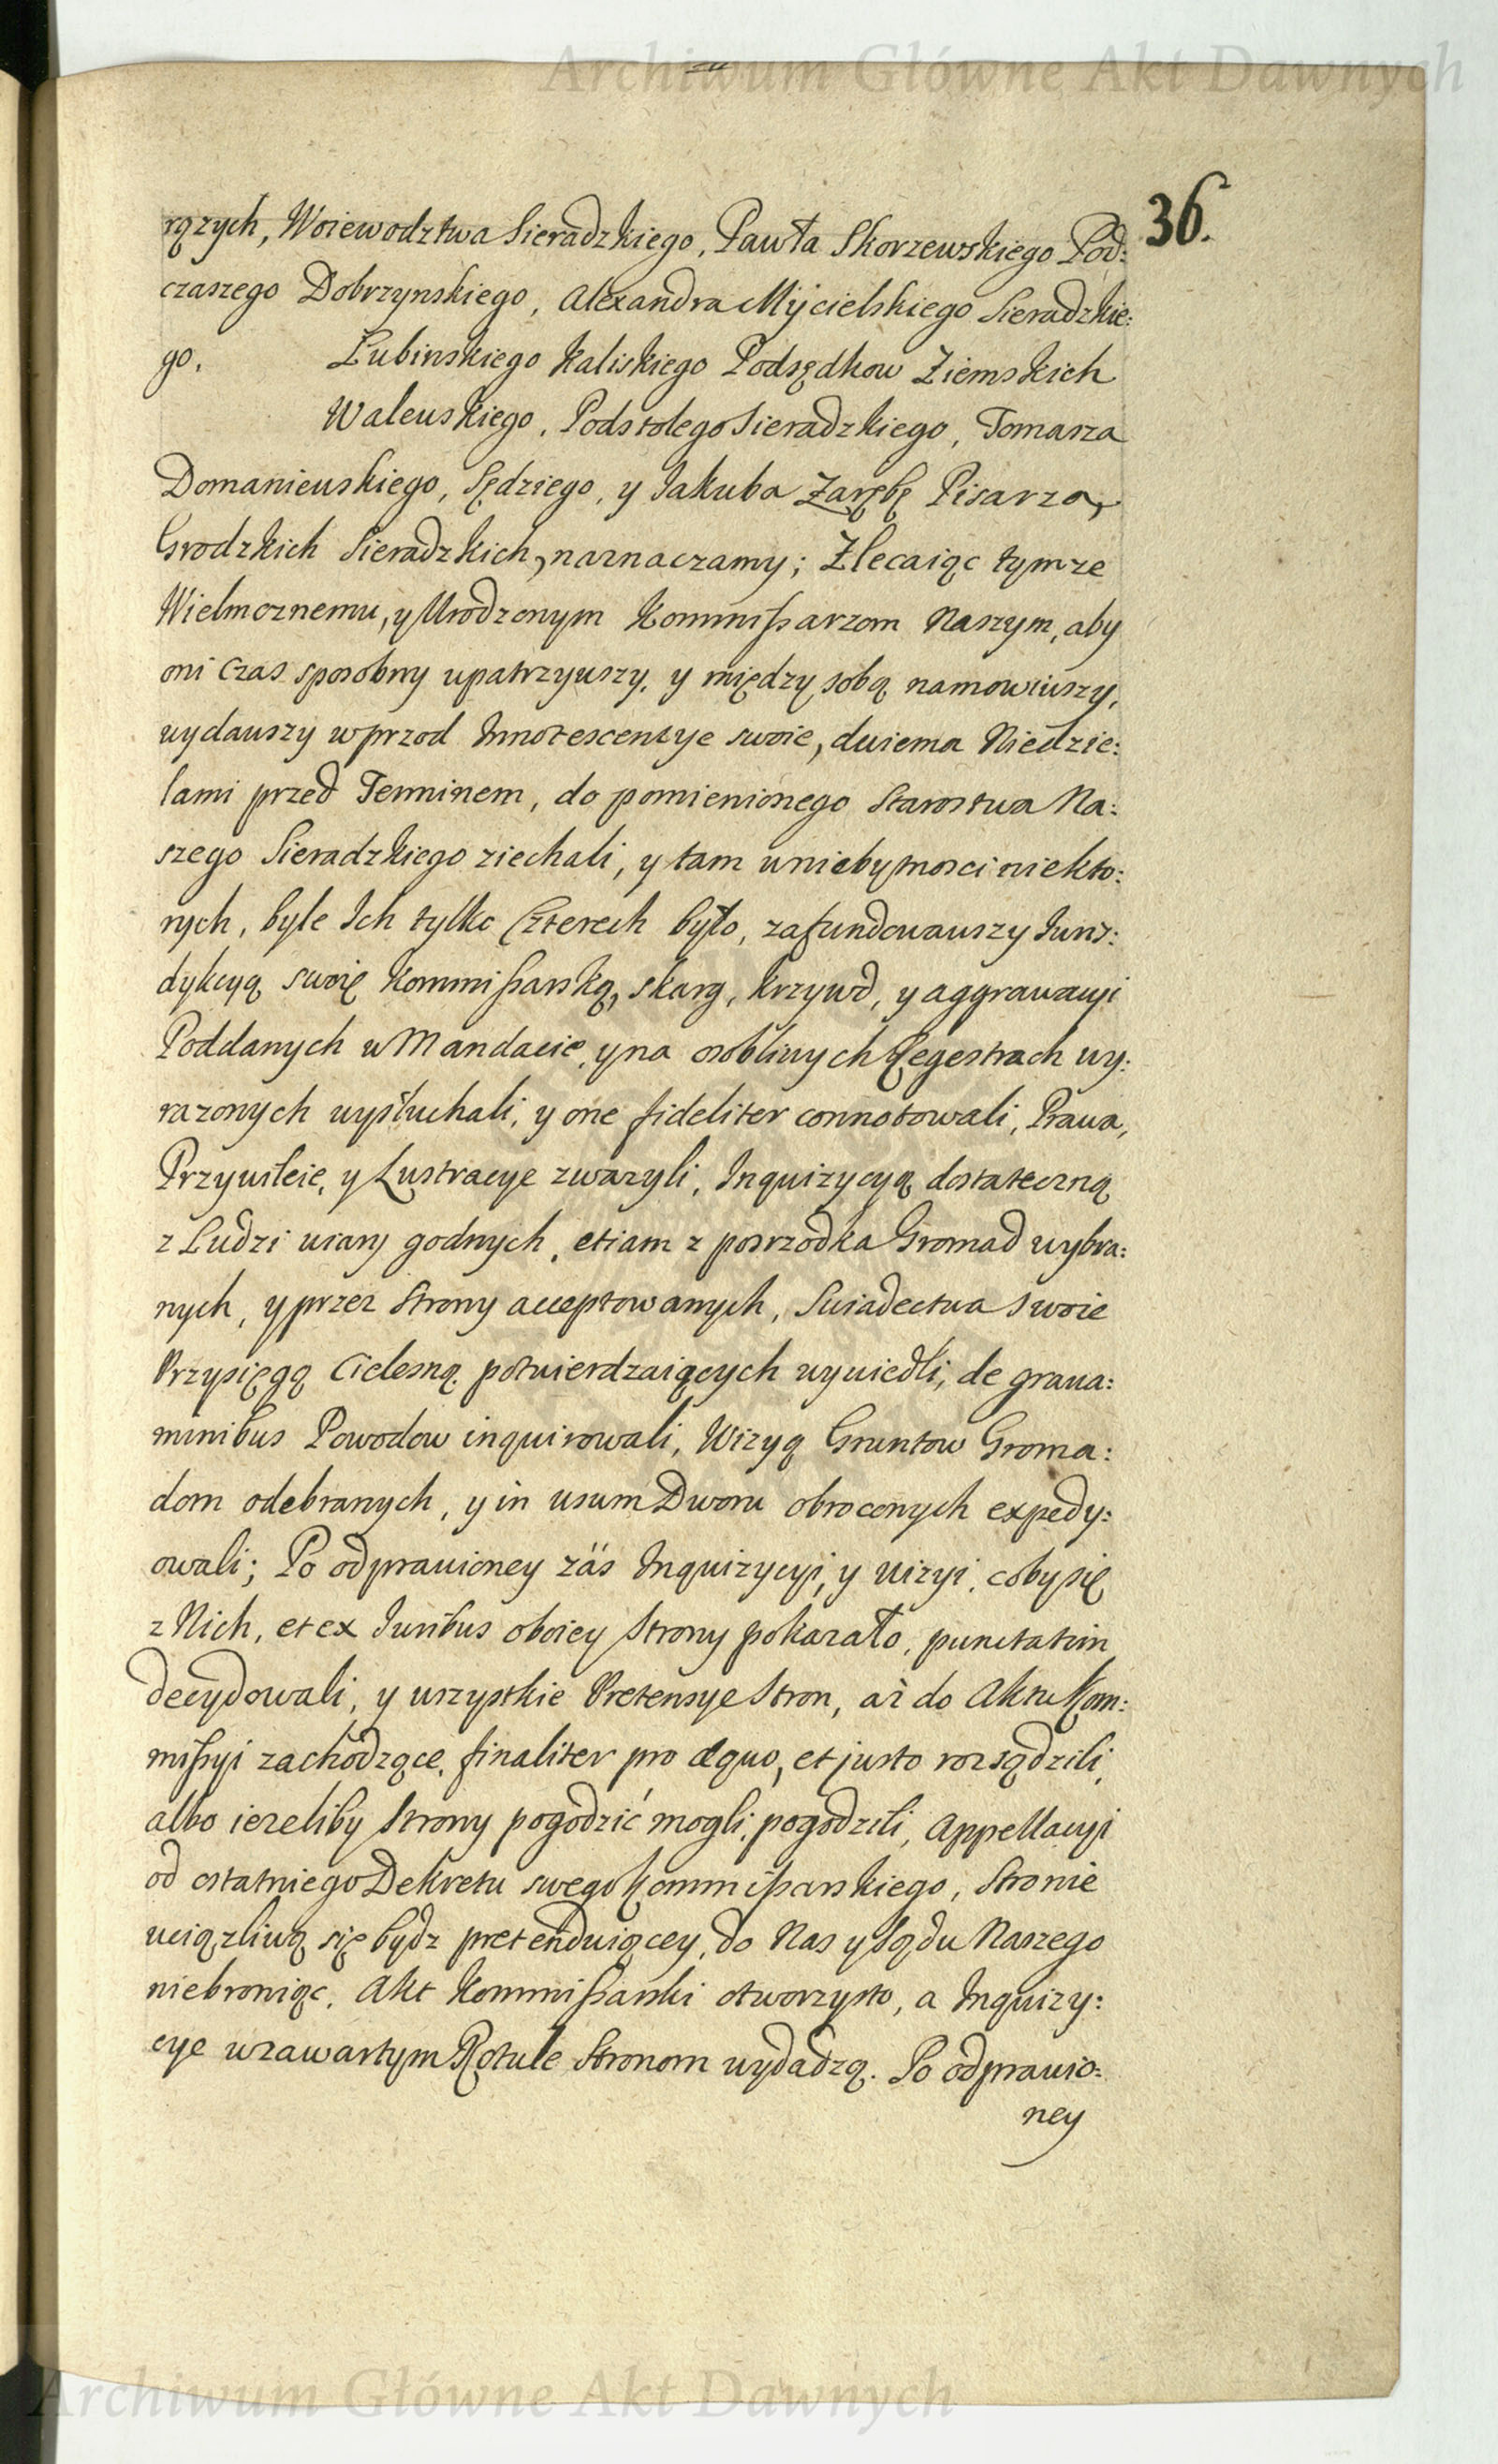 Archiwum Główne Akt Dawnych
36.
rązych, Woiewodztwa Sieradzkiego, Pawła Skorzewskiego Pod:
czaszego Dobrzynskiego, Alexandra Mÿcielskiego Sieradzkie:
go, Łubinskiego Kaliskiego Podsędkow Ziemskich
Walewskiego, Podstolego Sieradzkiego, Tomasza
Domaniewskiego, Sędziego, y Jakuba Zarębę Pisarza,
Grodzkich Sieradzkich, naznaczamy; Zlecaiąc tymze
Wielmoznemu, y Urodzonym Kommissarzom Naszym, aby
oni czas sposobny upatrzywszy, y między sobą namowiwszy,
wydawszy wprzod Innotescentye swoie, dwiema Niedzie:
lami przed Terminem, do pomienionego Starostwa Na:
szego Sieradzkiego ziechali, y tam w niebytnosci niekto:
rych, byle Ich tylko Czterech było, zafundowawszy Juris:
dykcyą swoię Kommissarską, skarg, krzywd, y aggrawacyi
Poddanych w Mandacie, y na osobliwych Regestrach wy:
razonych wysłuchali, y one fideliter connotowali, Prawa,
Przywileie, y Lustracye zwazyli, Inquizycyą dostateczną
z Ludzi wiary godnych, etiam z posrzodka Gromad wybra:
nych, y przez Strony acceptowanych, Swiadectwa swoie
Przysięgą Cielesną potwierdzaiących wywiedli, de grava:
minibus Powodow inquirowali, Wizyą Gruntow Groma:
dom odebranych, y in usum Dworu obroconych expedy:
owali; Po odprawioney zás Inquizycyi, y wizyi, coby się
z Nich, et ex Juribus oboiey Strony pokazało, punctatim
decydowali, y wszystkie Pretensye Stron, aż do Aktu Kom:
missyi zachodzące, finaliter pro æquo, et justo rozsądzili,
albo ieżeliby Strony pogodzić mogli, pogodzili, Appellacyi
od ostatniego Dekretu swego Kommissarskiego, Stronie
uciązliwą się bydz pretenduiącey, do Nas y Sądu Naszego
niebroniąc, Akt Kommissarski otworzysto, a Inquizy:
cye w zawartym Rotule Stronom wydadzą. Po odprawio:
ney
Archiwum Główne Akt Dawnych